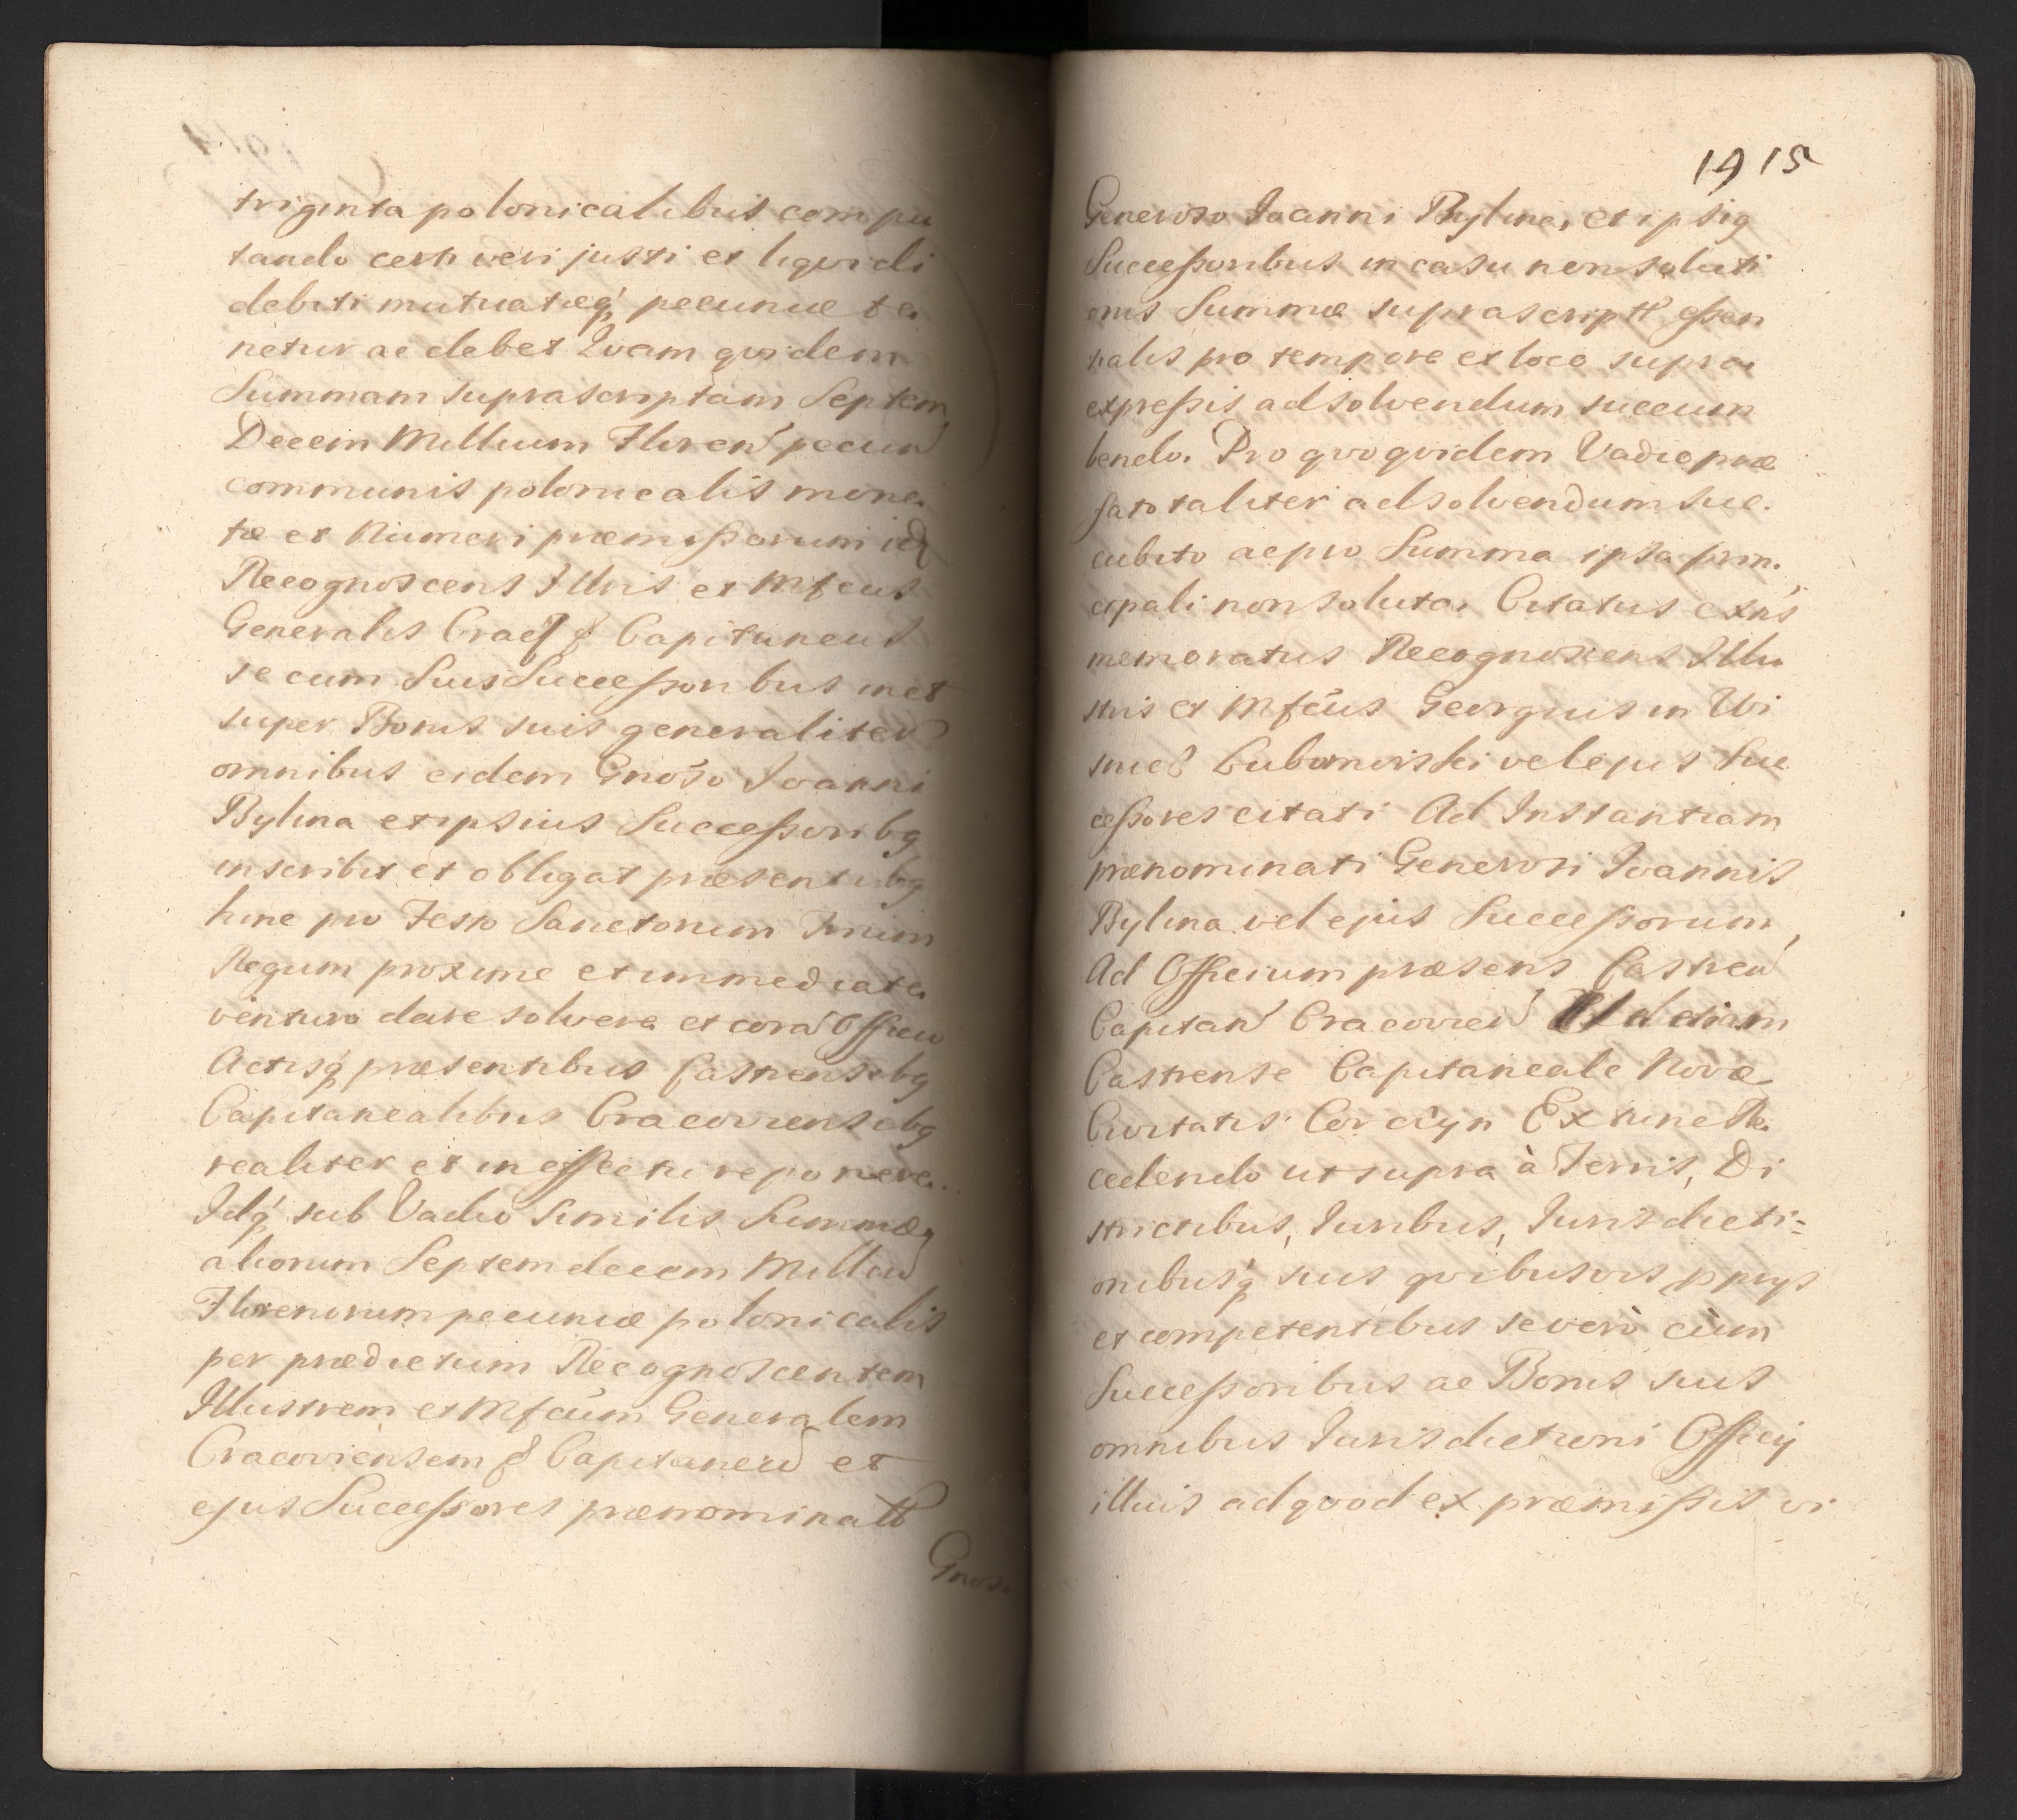 triginta polonicalibus compu
tando certi veri justi et liqvidi
debiti mutuatæq́ pecuniæ te
netur ac debet Qvam qvidem
Summam suprascriptam Septem
Decem Millium Floreń pecuń
communis polonicalis mone
tæ et Numeri præmissorum idq
Recognoscens Illris et Mfcus
Generalis Crac & Capitaneus
se cum Suis Successoribus inet
super Bonis suis generaliter
omnibus eidem Gnoso Joanni
Bylina et ipsius Successoribq
inscribit et obligat præsentibq
hinc pro Festo Sanctorum Trium
Regum proxime et immediate
venturo dare solvere et corā Officio
Actisq́ præsentibus Castrensibq
Capitanealibus Cracoviensibq
realiter et in effectu reponere.
Idq́ sub Vadio Similis Summæ
aliorum Septemdecem Milliū
Florenorum pecuniæ polonicalis
per prædictum Recognoscentem
Illustrem et Mfcūm Generalem
Cracoviensem & Capitaneū et
ejus Successores prænominatto
Gnoso
19 15
Generoso Joanni Bylina, et ipsiq
Successoribus in casu non soluti
onis Summæ suprascriptt essen
tialis pro tempore et loco supra
expressis adsolvendum succum
bendo. Pro qvo qvidem Vadio præ
fato taliter adsolvendum suc.
cubito ac pro Summa ipsa prin.
cipali non soluta, Citatus exńs
memoratus Recognoscens Illu
stris et Mfcūs Georgius in Wi
snicz Lubomirski vel ejus Suc
cessores citati Ad Instantiam
prænominati Generosi Joannis
Bylina vel ejus Successorum,
Ad Officium præsens Castreń
Capitań Cracovień Ad etiam
Castrense Capitaneale Novæ
Civitatis Corczyn Ex tunc Re
cedendo ut supra à Terris, Di
strictibus, Juribus, Jurisdicti=
onibusq́ suis qvibusvis pprijs
et competentibus se verò cùm
Successoribus ac Bonis suis
omnibus Jurisdictioni Officij
illius ad qvod ex præmissis vi